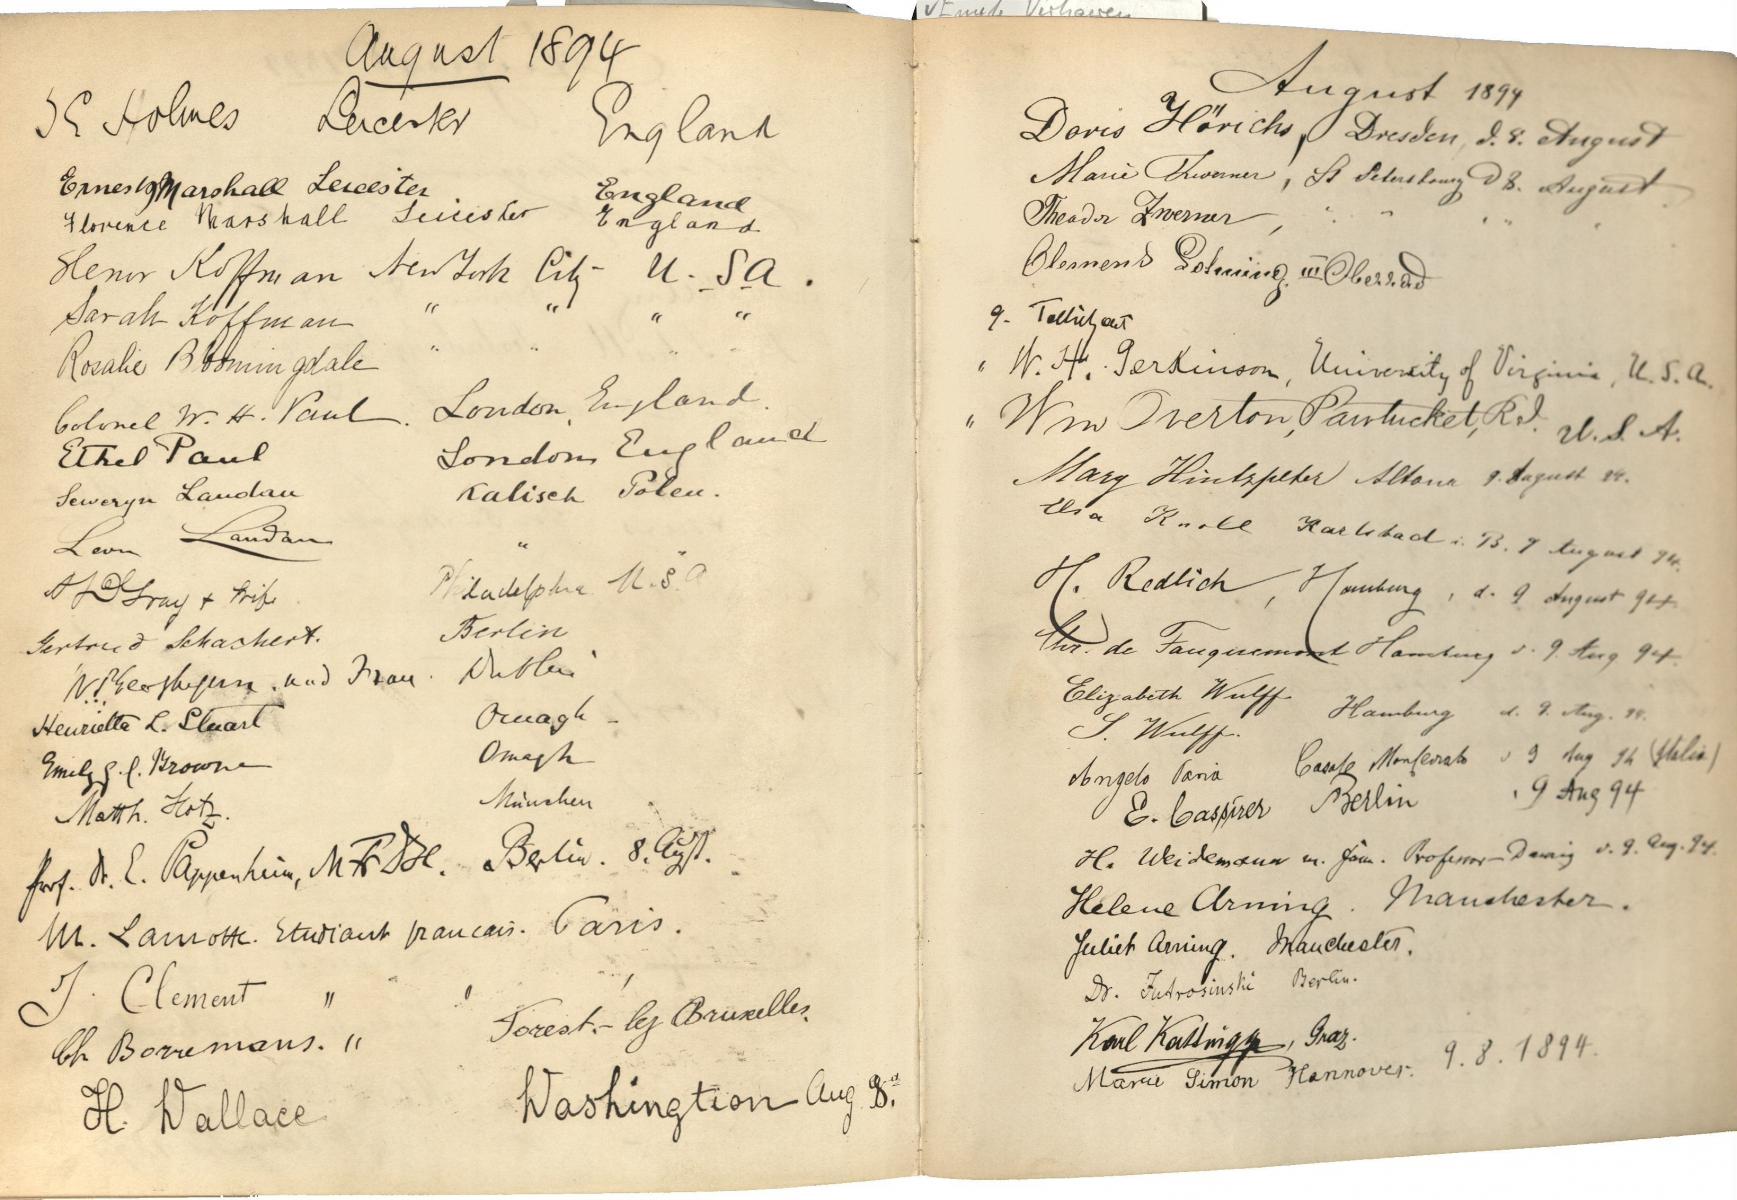 Emile Verhaeren
August 1894
Holmes Leicester England
Ernest Marshall Leicester England
Florence Marshall Leicester England
Henry Koffman New York City U. S A.
Sarah Koffman " " " "
Rosalie Bloomingdale " " " "
Colonel W. H. Paul. London, England.
Ethel Paul London England
Seweryn Landau Kalisch Polen.
Leon Landau "
Gray & Wife Philadelphia U.S.A
Gertrud Schachert. Berlin
und Frau. Dublin
Henrietta L. Stuart Omagh -
Emily Browne Omagh
Matth. Hotz. München
Prof. Dr. E. Pappenheim, Berlin. 8. Aug.
M. Lamotte. Etudiant francais. Paris.
J. Clement " " "
Ch Borremans. " Forest - lez Bruxelles.
H. Wallace Washingtion Aug 8.
August 1894
Doris Hörichs, Dresden, d. 8. August
Marie Zwerner, St Petersburg D 8. August
Theodor Zwerner, " " " " "
Clemens Oberrad
9.
" W. H. Perkinson, University of Virginia, U. S. A.
" Wm Overton, Pawtucket, R.I. U. S. A.
Mary Hintzpeter Altona 9. August 94.
Elsa Knoll Karlsbad i. B. 9 August 94.
H. Redlich, Hamburg, d. 9 August 94
Chr. de Fauquemont Hamburg d. 9. Aug 94.
Elizabeth Wulff Hamburg d. 9. Aug. 94.
S. Wulff.
Angelo Casale Monferrato 9 Aug 94 (Italia)
E. Casspirer Berlin . 9 Aug 94
H. Weidemann m. Fam. Professor - Danzig d. 9. Aug. 94.
Helene Arning. Manchester.
Juliet Arning. Manchester.
Dr. Berlin.
Karl Graz.
Marie Simon Hannover. 9. 8. 1894.